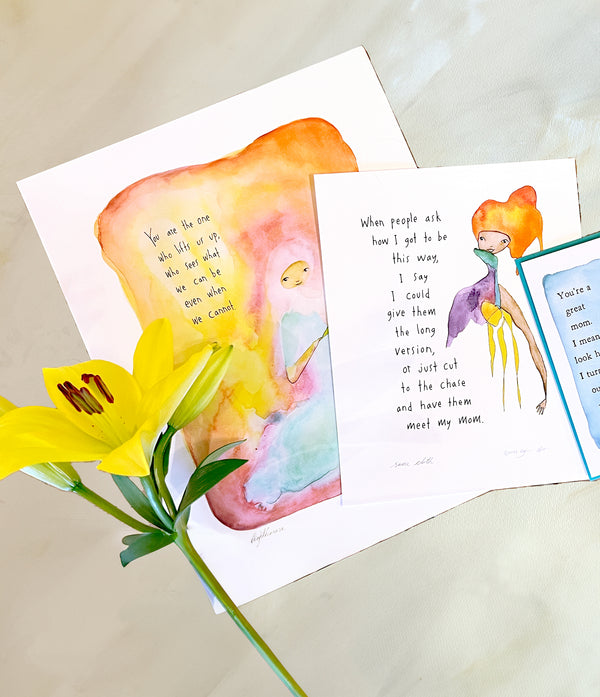 You are the one
who lifts us up,
who sees what
we can be
even when
we cannot.
When people ask
how I got to be
this way,
I say
I could
give them
the long
version,
or just cut
to the chase
and have them
meet my mom.
same cloth
You're a
great
mom.
I mean
look h
I turn
ou